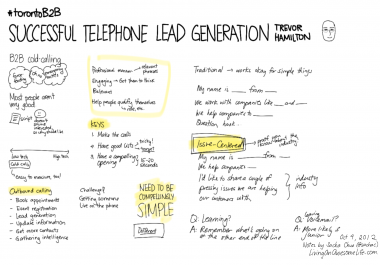 #torontoB2B
SUCCESSFUL TELEPHONE LEAD GENERATION
TREVOR
HAMILTON
B2B cold-calling
Most people aren't
very good
script
Low tech
High tech
Cold calls
Easy to measure, too!
Outbound calling
- Book appointments
- Event registration
- Lead generation
- Update information
- Get more contacts
- Gathering intelligence
Professional manner
relevant
phrases
Engaging
Get them to
Balance
Help people qualify themselves
role, etc.
KEYS
1. Make the calls
2. Have good lists
3. Have a compelling
opening!
15-20
seconds
Challenge?
Getting someone
live on the phone
NEED TO BE
COMPELLINGLY
SIMPLE
Different
Traditional → works okay for simple things
My name is ___ from ___
We work with companies like ___ and ___
We help companies
Question, book...
Issue-Centered
My name is ___ from ___
We help companies
I'd like to share a couple of
pressing issues we are helping
our customers with.
industry
info
Q: Learning?
A: Remember what's going on
at the other end of the line
Q: Leaving
Voicemail?
A: More likely if
Oct 4, 2012
Notes by Sacha Chua (@sachac)
LivingAnAwesomeLife.com